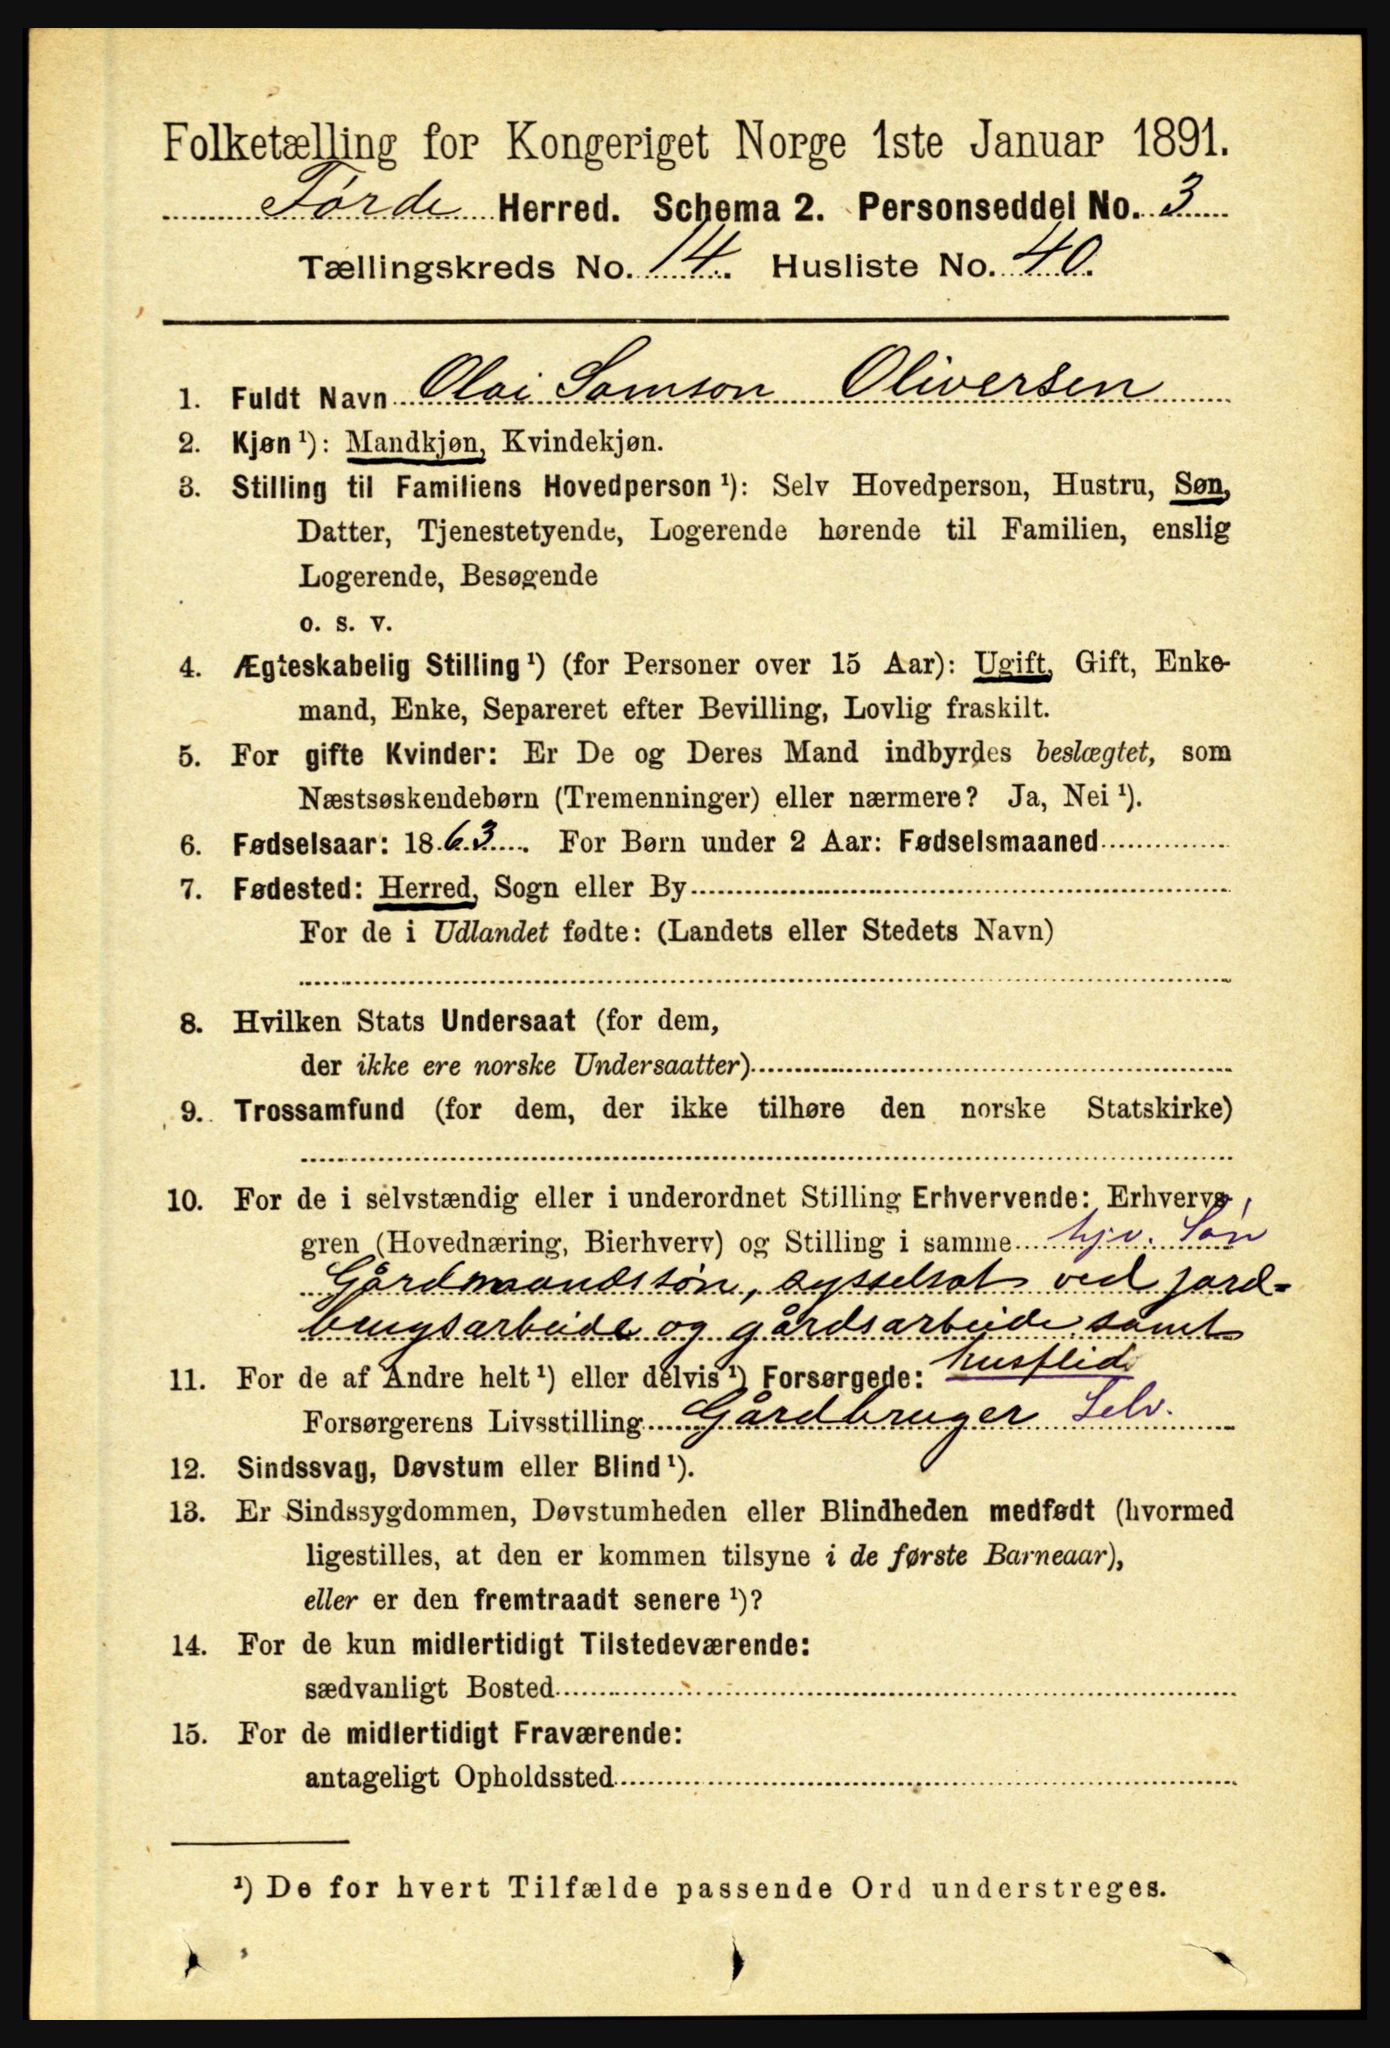 Folketælling for Kongeriget Norge 1ste Januar 1891.
Førde Herred. Schema 2. Personseddel No. 3
Tællingskreds No. 14. Husliste No. 40.
1. Fuldt Navn Olai Samson Oliversen
2. Kjøn ¹): Mandkjøn, Kvindekjøn.
3. Stilling til Familiens Hovedperson ¹): Selv Hovedperson, Hustru, Søn,
Datter, Tjenestetyende, Logerende hørende til Familien, enslig
Logerende, Besøgende
o. s. v.
4. Ægteskabelig Stilling ¹) (for Personer over 15 Aar): Ugift, Gift, Enke-
mand, Enke, Separeret efter Bevilling, Lovlig fraskilt.
5. For gifte Kvinder: Er De og Deres Mand indbyrdes beslægtet, som
Næstsøskendebørn (Tremenninger) eller nærmere? Ja, Nei ¹).
6. Fødselsaar: 1863. For Børn under 2 Aar: Fødselsmaaned
7. Fødested: Herred, Sogn eller By
For de i Udlandet fødte: (Landets eller Stedets Navn)
8. Hvilken Stats Undersaat (for dem,
der ikke ere norske Undersaatter)
9. Trossamfund (for dem, der ikke tilhøre den norske Statskirke)
10. For de i selvstændig eller i underordnet Stilling Erhvervende: Erhvervs-
gren (Hovednæring, Bierhverv) og Stilling i samme hjv. Søn
Gårdmandssøn, sysselsat ved jord-
brugsarbeide og gårdsarbeide samt
husflid
11. For de af Andre helt ¹) eller delvis ¹) Forsørgede:
Forsørgerens Livsstilling Gårdbruger Selv.
12. Sindssvag, Døvstum eller Blind ¹).
13. Er Sindssygdommen, Døvstumheden eller Blindheden medfødt (hvormed
ligestilles, at den er kommen tilsyne i de første Barneaar),
eller er den fremtraadt senere ¹)?
14. For de kun midlertidigt Tilstedeværende:
sædvanligt Bosted
15. For de midlertidigt Fraværende:
antageligt Opholdssted
¹) De for hvert Tilfælde passende Ord understreges.